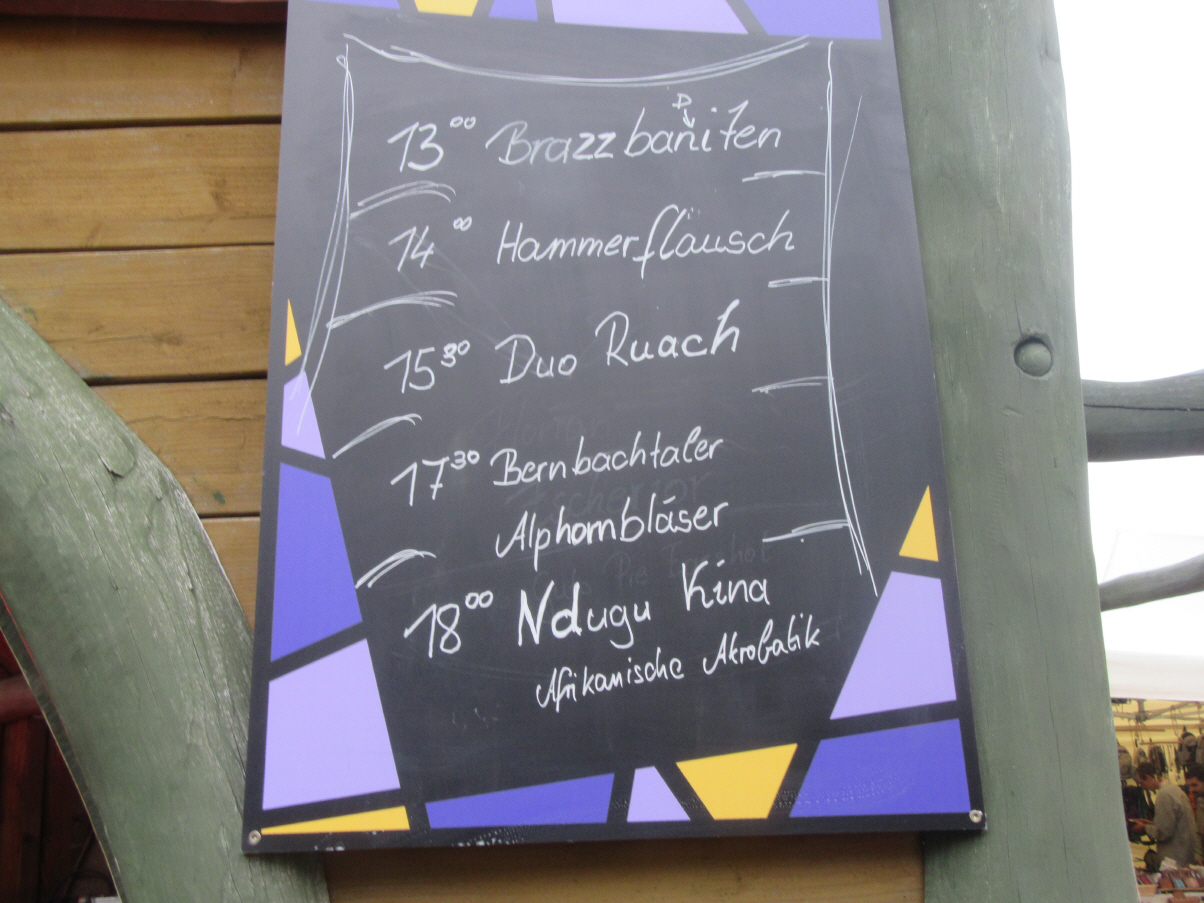 13⁰⁰ Brazzbaniten
D
14⁰⁰ Hammerfläusch
15³⁰ Duo Ruach
17³⁰ Bernbachtaler
Alphornbläser
18⁰⁰ Ndugu Kina
Afrikanische Akrobatik